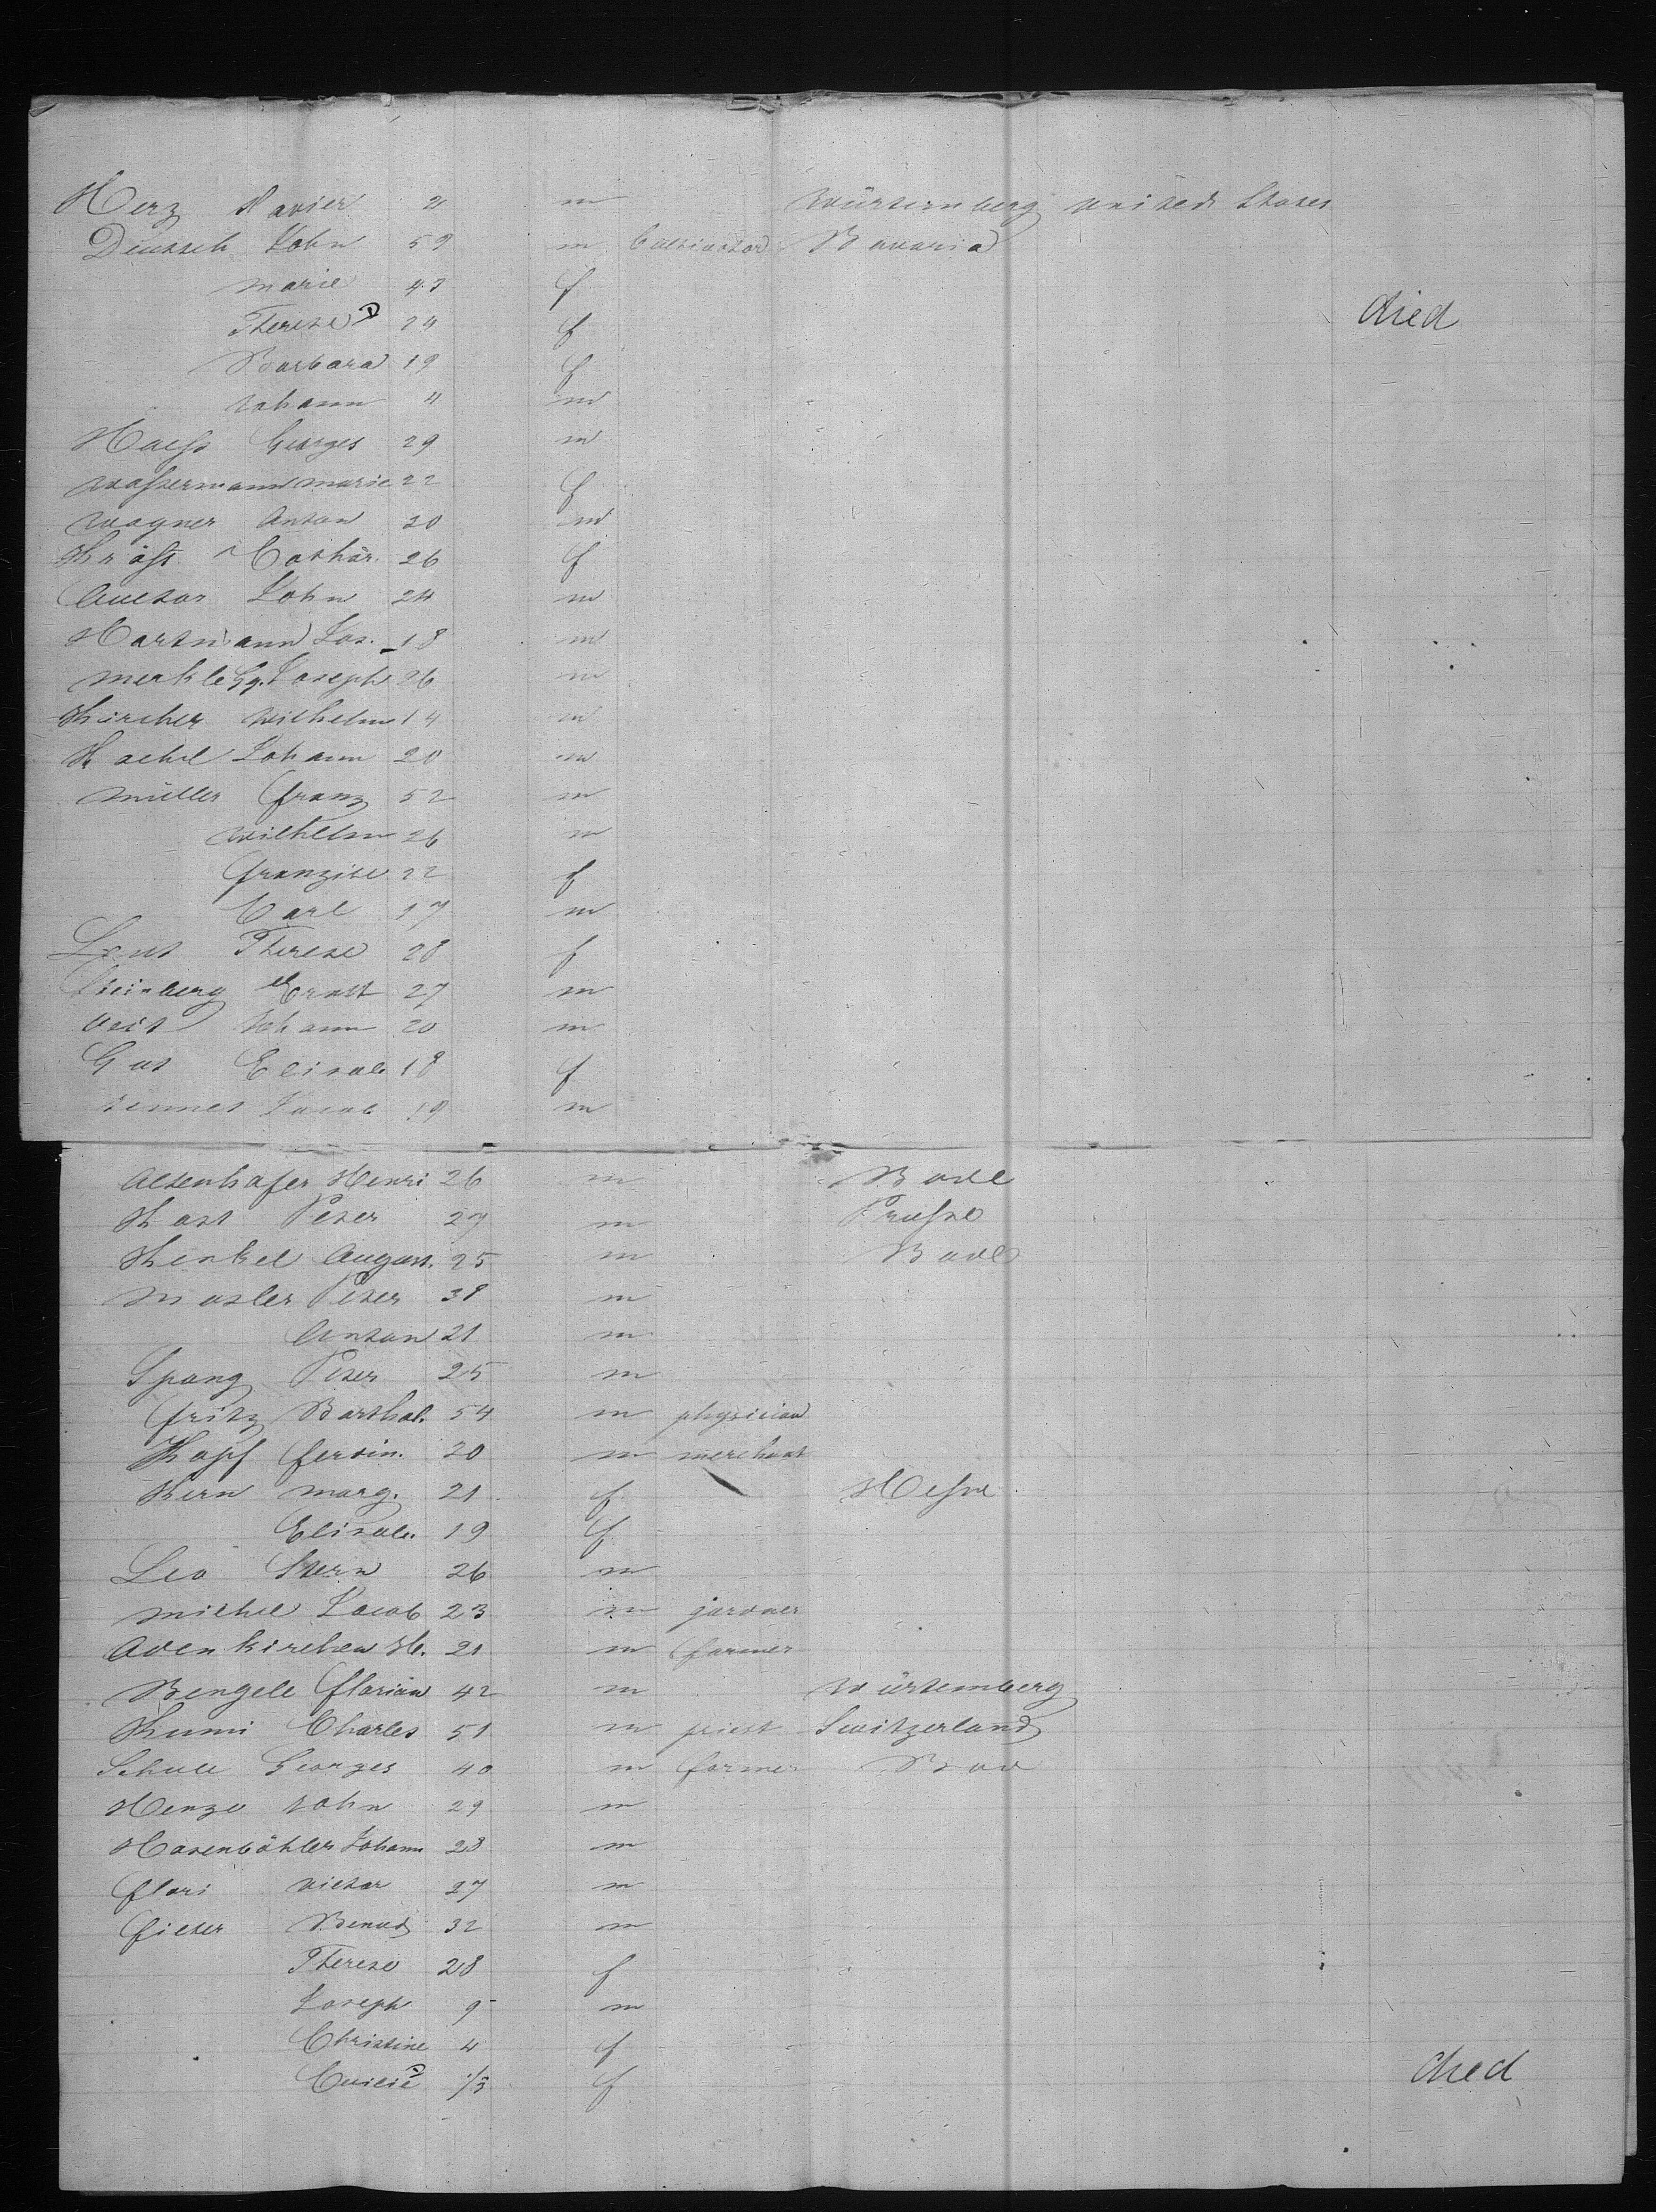 Herz Xavier 21 m Würtemberg united States
Deutsch John 59 m Cultivator Bavaria
Marie 43 f
Therese D 24 f died
Barbara 19 f
Johann 4 m
Haess Georges 29 m
Wassermann Marie 22 f
Wagner Anton 20 m
Kräft Cathar. 26 f
John 24 m
Hartmann Jos. 18 m
Merkle Gg. Joseph 26 m
Kircher Wilhelm 14 m
Johann 20 m
Müller Franz 52 m
Wilhelm 26 m
22 f
Carl 17 m
Therese 28 f
Steinberg Ernst 27 m
Veit Johann 20 m
Gut Elisab. 18 f
Jacob 19 m
Altenhofer Henri 26 m Bade
Kast Peter 27 m Prusse
Henkel August. 25 m Bade
Mosler Peter 38 m
Anton 21 m
Spang Peter 25 m
Fritz Barthol. 54 m physician
Kopf Ferdin. 20 m merchant
Kern Marg. 21 f Hesse
Elisab. 19 f
Leo Stern 26 m
Michel Jacob 23 m gardner
Odenkirchen H. 21 m farmer
Bengele Florian 42 m Würtemberg
Kumi Charles 51 m priest Switzerland
Georges 40 m farmer Bad
Menze John 29 m
Hasenböhler Johann 23 m
Flori Victor 27 m
32 m
Therese 28 f
Joseph 9 m
Christine 4 f
1/3 f died